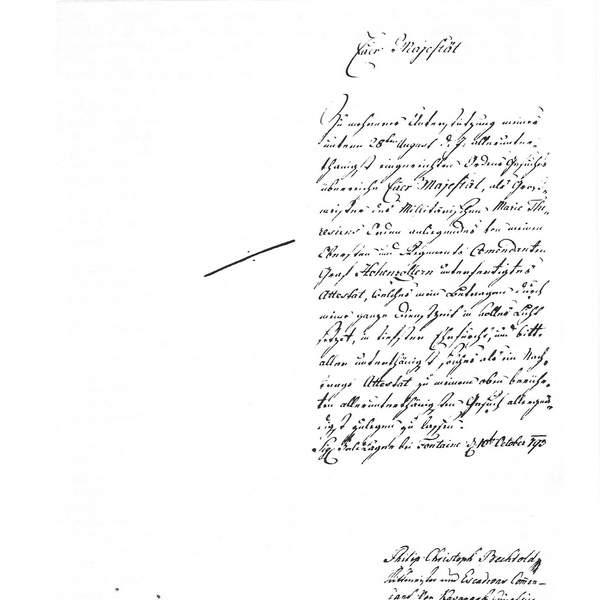 Euer Majestät
Zu mehrerer Unterstützung meines
unterm 28ten August d. J. allerunter-
thänigst eingereichten Ordens Gesuches
überreiche Euer Majestät, als Gros-
meister des Militärischen Marie The-
resiens Orden anliegendes von meinem
Obersten und Regiments Comendanten
Graf Hohenzollern unterfertigtes
Attestat, welches mein Betragen durch
meine ganze Dienstzeit in volles Licht
setzet, in tiefster Ehrfurcht, und bitte
aller unterthänigst solches als ein Nach-
trags Attestat zu meinem oben berühr-
ten allerunterthänigsten Gesuch allergnä-
digst zulegen zu lassen.
Sig. Feld Lager bei Fontaine d 10t October 793
Philip Christoph Bechtold
Rittmeister und Escadrons Commen-
dant von Kavanagh